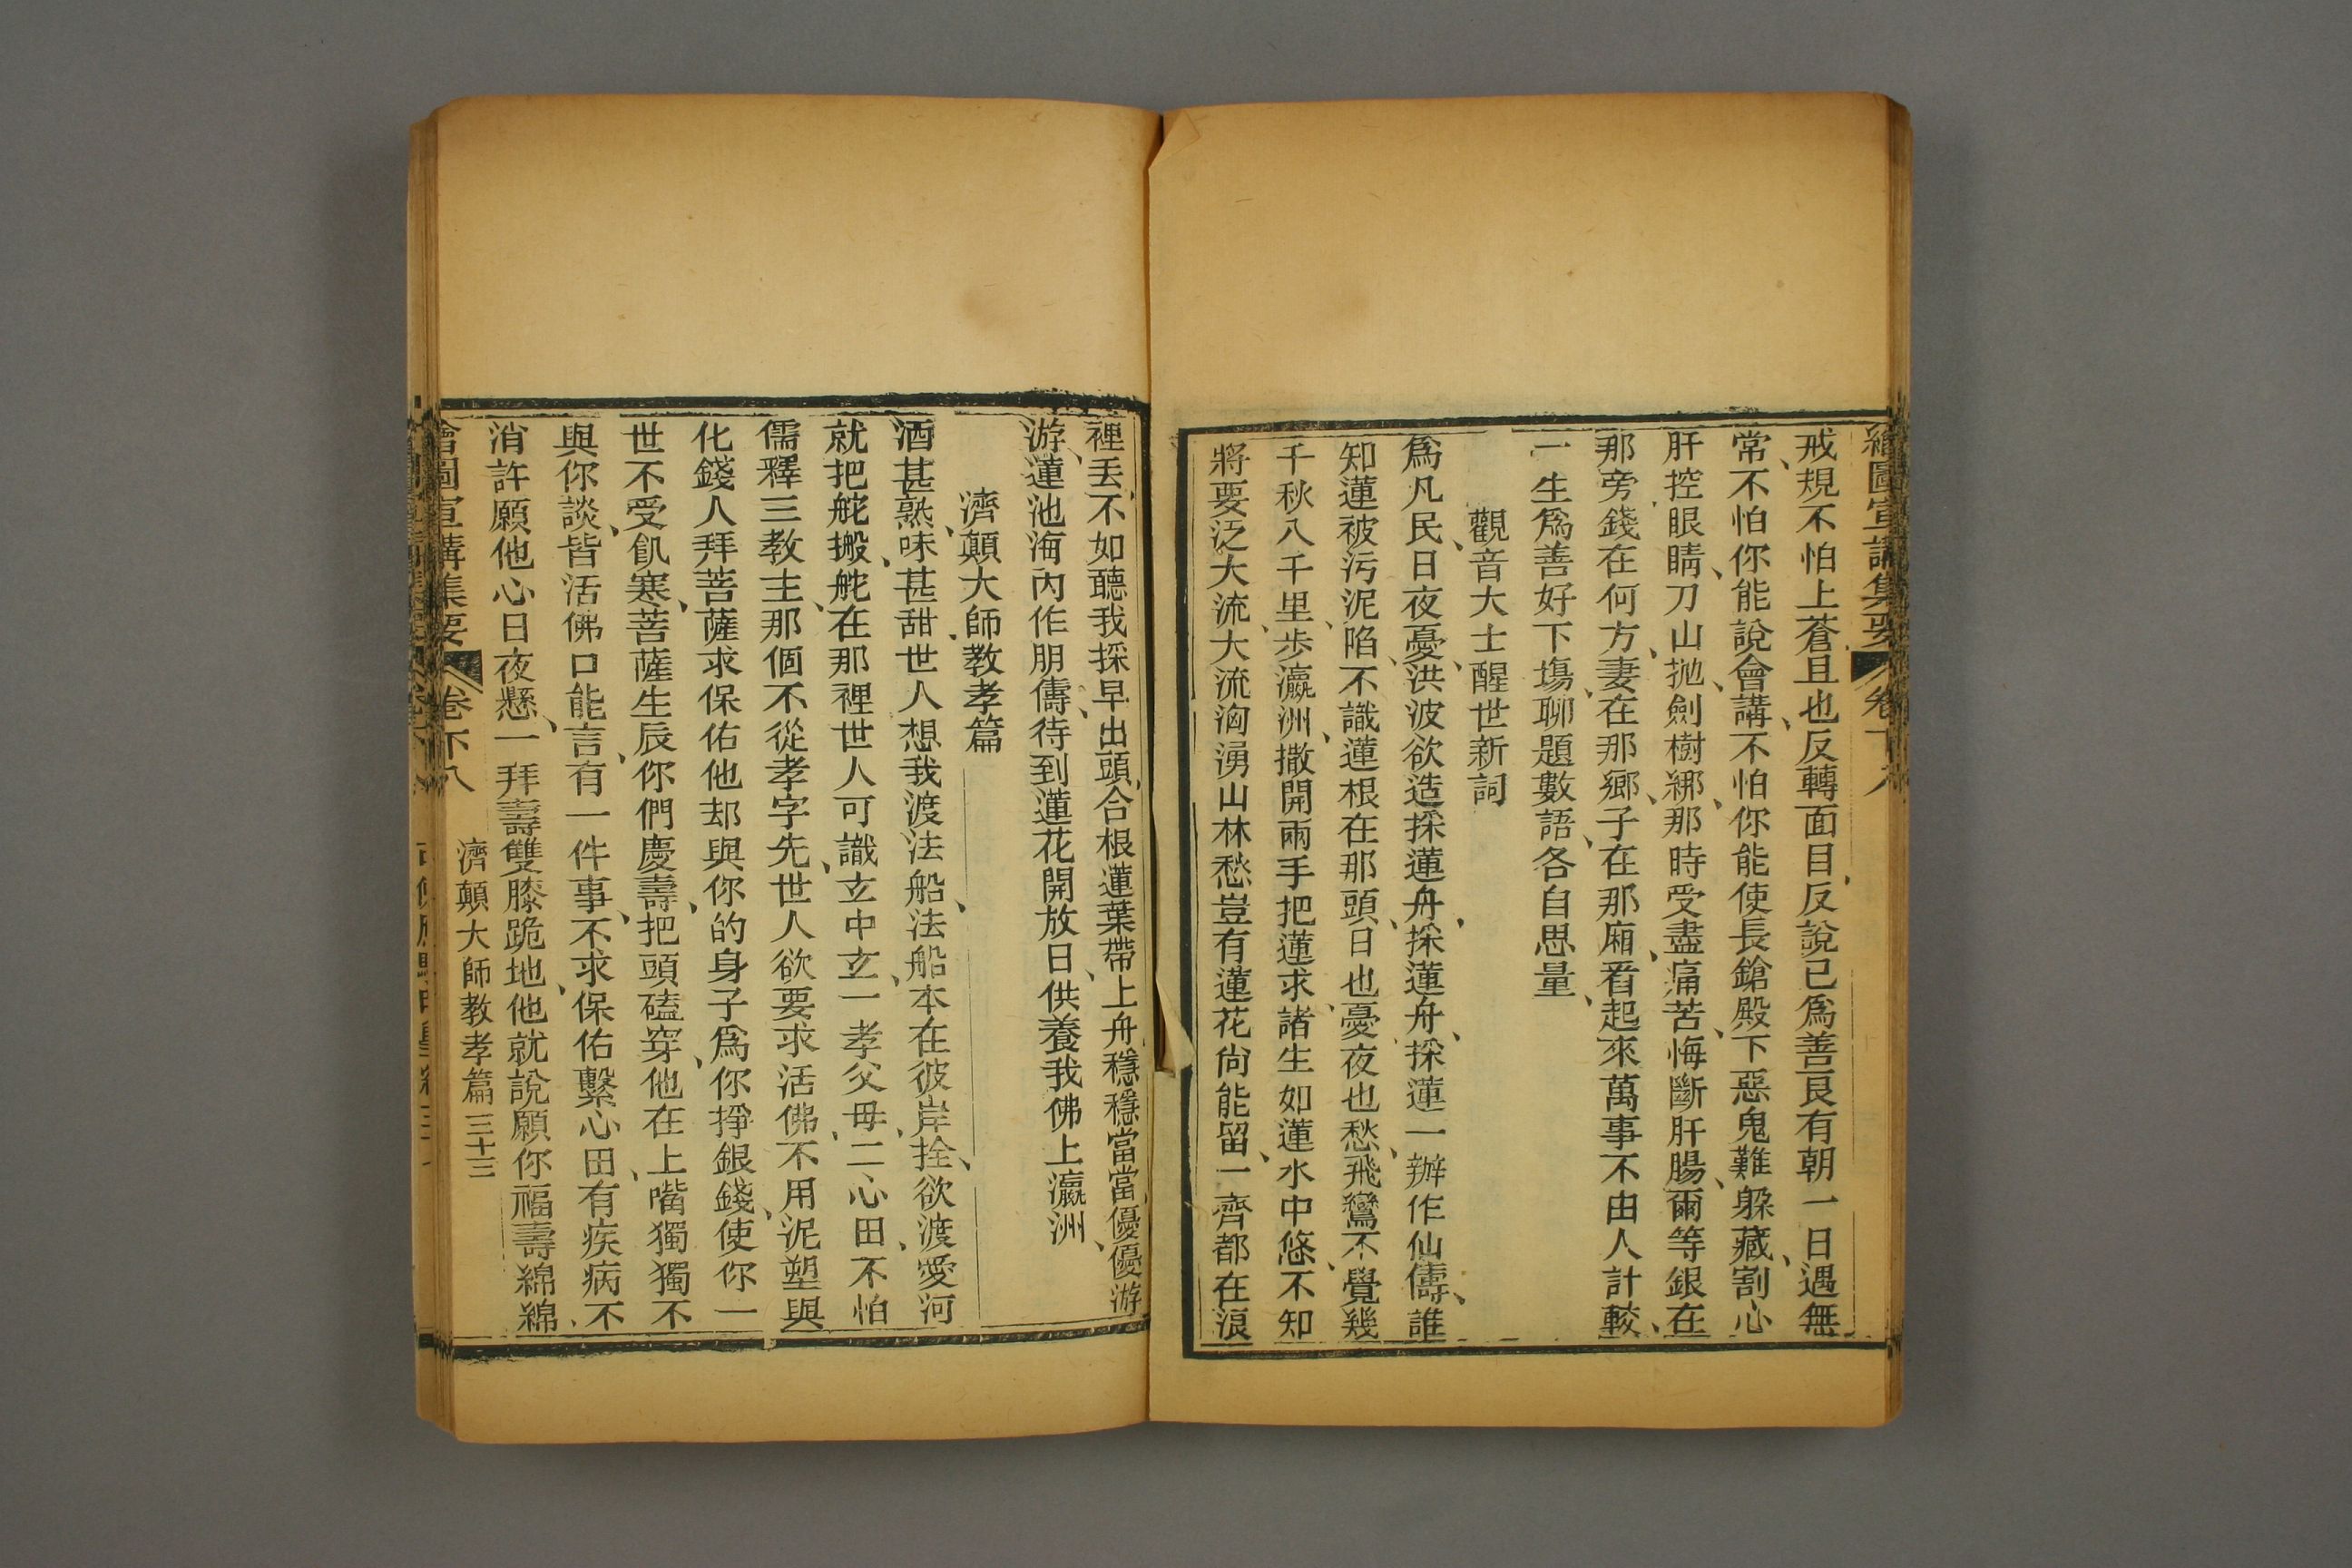 繪圖宣講集要 卷下八
戒規不怕上蒼且也反轉面目反說已爲善良有朝一日遇無
常、不怕你能說會講、不怕你能使長鎗殿下惡鬼難躲藏、割心
肝控眼睛、刀山拋、劍樹綁、那時受盡痛苦、悔斷肝腸、爾等銀在
那旁、錢在何方、妻在那鄉、子在那廂、看起來萬事不由人計較、
一生爲善好下塲、聊題數語、各自思量、
觀音大士醒世新詞
爲凡民、日夜憂、洪波欲造採蓮舟、採蓮舟、採蓮一辦作仙儔、誰
知蓮被污泥陷、不識蓮根在那頭、日也憂、夜也愁、飛鸞不覺幾
千秋、八千里、步瀛洲、撒開兩手把蓮求、諸生如蓮水中悠、不知
將要泛大流、大流洶湧山林愁豈有蓮花尙能留、一齊都在浪
裡丟、不如聽我採早出頭、合根蓮葉帶上舟、穩穩當當、優優游
游、蓮池海內作朋儔、待到蓮花開放日、供養我佛上瀛洲、
濟顛大師教孝篇
酒甚熟、味甚甜、世人想我渡法船、法船本在彼岸拴、欲渡愛河
就把舵搬、舵在那裡世人可識玄中玄、一孝父母、二心田、不怕
儒釋三教主、那個不從孝字先、世人欲要求活佛、不用泥塑與
化錢、人拜菩薩求保佑他却與你的身子爲你掙銀錢、使你一
世不受飢寒、菩薩生辰你們慶壽、把頭磕穿、他在上嘴獨獨不
與你談、皆活佛口能言、有一件事、不求保佑繫心田、有疾病不
消許願他心日夜懸、一拜壽雙膝跪地、他就說願你福壽綿綿、
繪圖宣講集要 卷下八 濟顛大師教孝篇 三十三